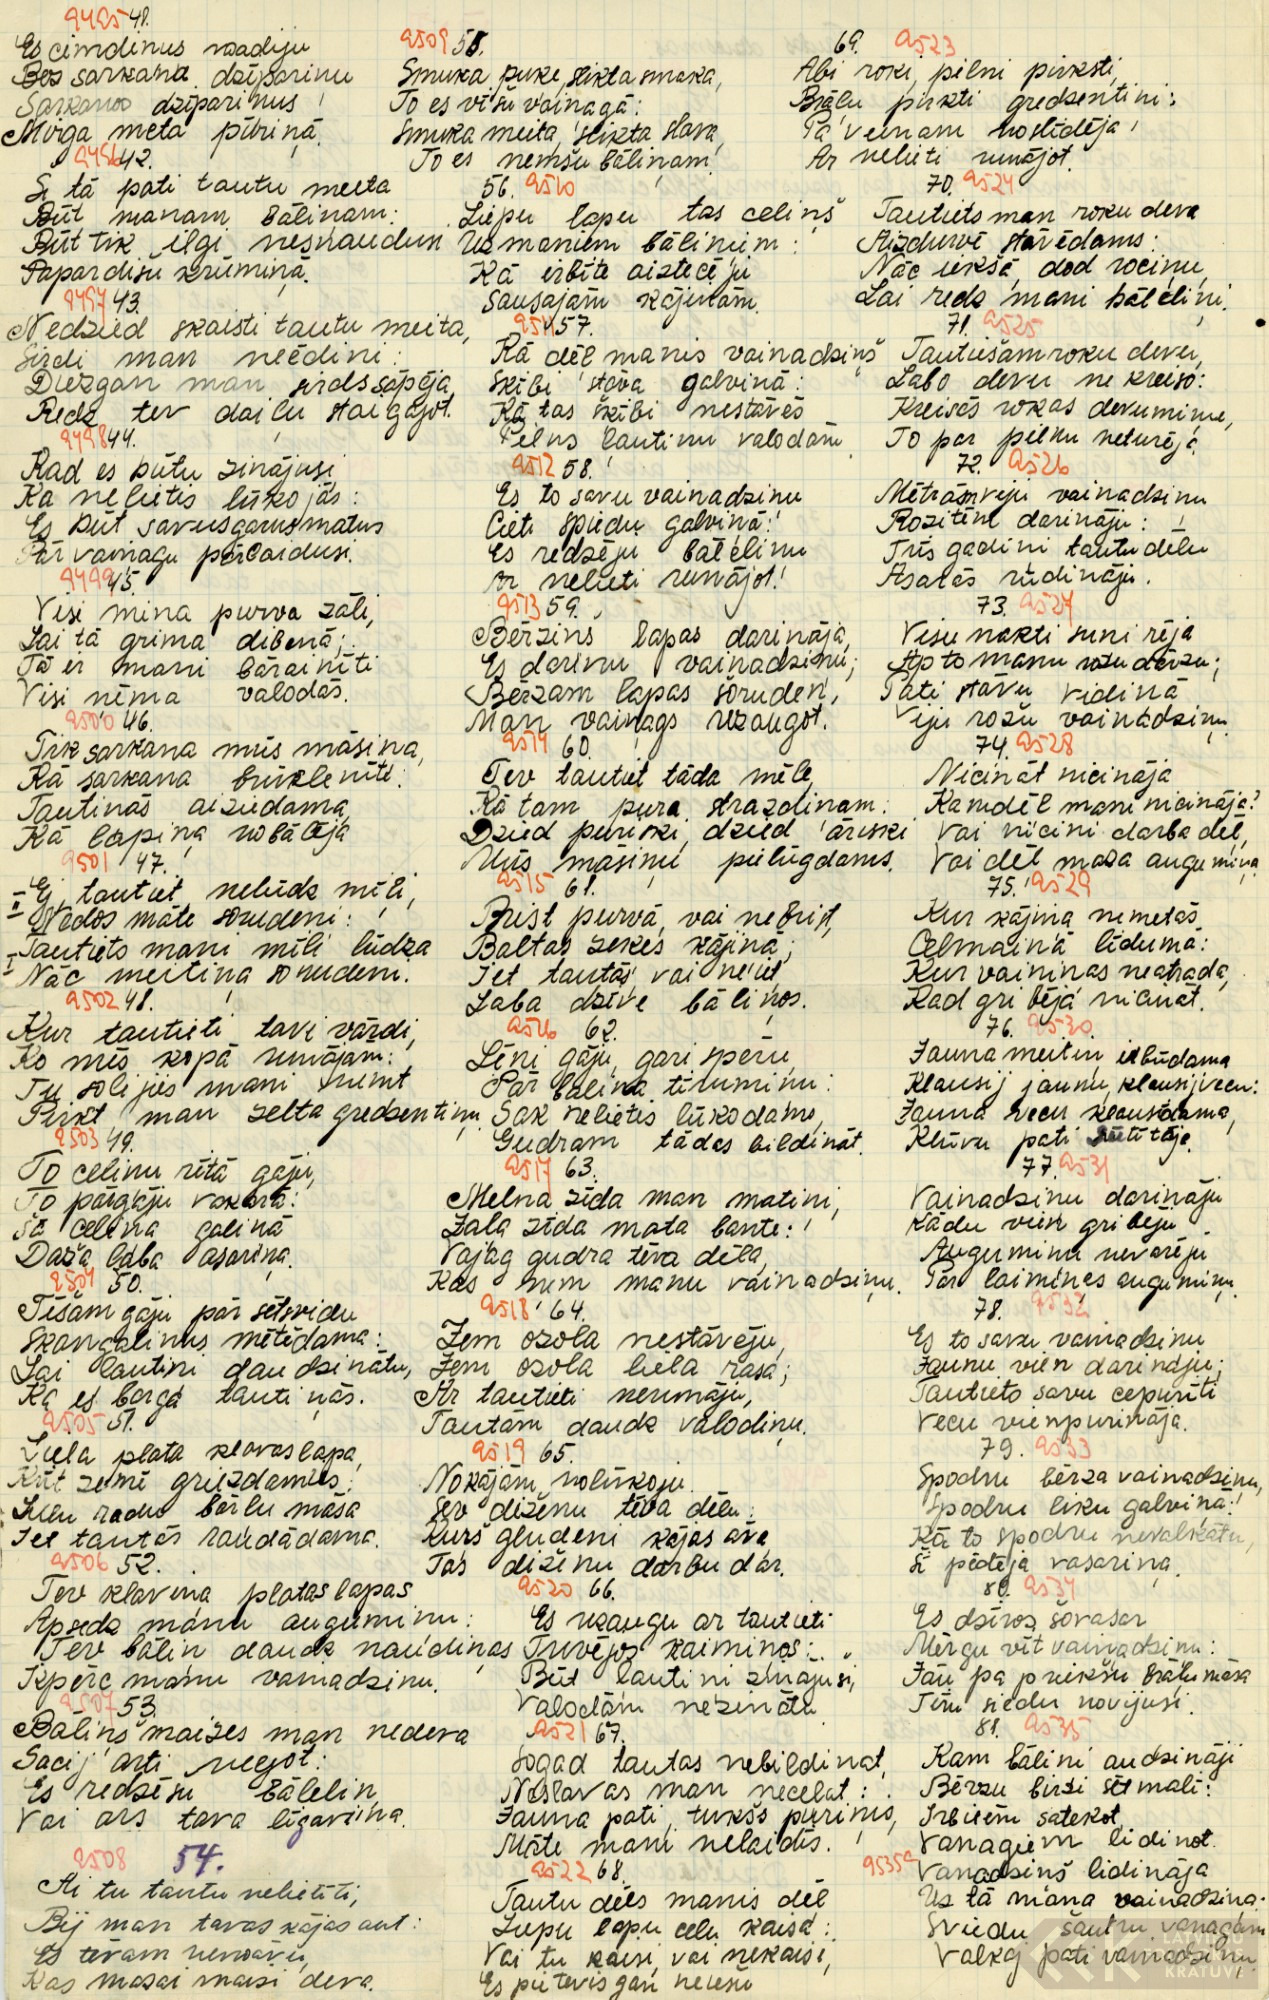 9495 41.
Es cimdiņus raadiju
Bes sarkana dzīpariņu
Sarkanos dzīpariņus
Mārga meta pībiņā.
9496 42.
Si tā pati tautu meita
Būt manam bāliņam:
Būt tik ilgi nesnaudun
Papardīšu krūmiņā.
9497 43.
Nedzied skaisti tautu meita,
Sirdi man neēdini:
Diezgan man sirds sāpēja,
Redz tev daiļu staigājot.
9498 44.
Kad es būtu zinājusi,
Ka nelietis lūkojās:
Es būt savus garus matus
Pār vainagu pārlaidusi.
9499 45.
Visi mina purva zāli,
Lai tā grima dibenā;
Tā ir mani bārainīti
Visi nēma valodās.
9500 46.
Tik sarkana mūs māsiņa,
Kā sarkana brūklenīte:
Tautiņās aiziedama,
Kā lapiņa nobālēja
9501 47.
II Ej, tautiet, nelūdz mīļi,
Nedos māte šoruden:
I Tautiets mani mīļi lūdza
Nāc meitiņa šoruden.
9502 48.
Kur tautieti tavi vārdi,
Ko mēs kopā runājam:
Tu solijies mani ņemt
Pirkt man zelta gredzentiņu.
9503 49.
To celiņu rītā gāju,
To pārgāju vakarā:
Šā celiņa galiņā
Daža laba asariņa.
9504 50.
Tīšām gāju pār sētsvidu
Skangaliņus mētādama:
Lai ļautiņi daudzinātu,
Ka es barga tautiņās.
9505 51.
Liela plata kļavas lapa,
Krīt zemē griezdamies:
Lielu radu bārlu māsa
Iet tautās raudādama.
9506 52.
Tev kļaviņa platas lapas
Apsedz manu augumiņu:
Tev bāliņ daudz naudiņas
Izpērc manu vainadziņu.
9507 53.
Bāliņš maizes man nedeva
Sacīj' arti neejot:
Es redzēju bālēliņ,
Vai ars tava līgaviņa.
9508 54.
Ai tu tautu nelietīti,
Bij man tavas kājas aut:
Es tēvam neaāvu,
Kas masai maizi deva.
9509 55.
Smuka puķe, slikta smaka,
To es višu vainagā:
Smuka meita, slikta slava,
To es ņemšu bāliņam.
56. 9510
Liepu lapu tas celiņš
Uz maniem bāliņiem:
Kā irbīte aiztecēju
Sausajām kājiņām.
9511 57.
Kā dēļ manis vainadziņš
Škībi stāva galviņā:
Kā tas škībi nestāvēs
Pilns ļautiņu valodām.
9512 58.
Es to savu vainadziņu
Cieti spiedu galviņā:
Es redzēju bālēliņu
Ar nelieti runājot!
9513 59.
Bērziņš lapas darināja,
Es darinu vainadziņu;
Bērzam lapas šoruden,
Man vainags uzaugot.
9514 60.
Tev tautiet tāda mēle,
Kā tam pura strazdiņam:
Dzied puriski, dzied āriski
Mūs māsiņu pielūgdams.
9515 61.
Brist purvā, vai nebrist,
Baltas zeķes kājiņā;
Iet tautās vai neiet
Laba dzīve bāliņos.
9516 62.
Lēni gāju, gari spēru,
Pār bāliņa tīrumiņu:
Sak nelietis lūkodams,
Gudram tādas bildināt.
9517 63.
Melna zīda man matiņi,
Zaļa zīda mata bante:
Vajag gudra tēva dēla,
Kas ņem manu vainadziņu.
9518 64.
Zem ozola nestāvēju,
Zem ozola liela rasa;
Ar tautieti nerunāju,
Tautām daudz valodiņu.
9519 65.
No kājām nolūkoju
Sev dižēnu tēva dēlu:
Kurš gludeni kājas āva,
Tas diženu darbu dar.
9520 66.
Es uzaugu ar tautieti
Tuvējos kaimiņos:
Būt ļautiņi zinājuši,
Valodām neznātu
9521 67.
Šogad tautas nebildinat,
Neslavas man necelat:
Jauna pati, tukšs pūriņš,
Māte mani nelaidīs.
9522 68.
Tautu dēls manis dēļ
Liepu lapu ceļu kaisa:
Vai tu kaisi, vai nekaisi,
Es pie tevis gan neiešu
69. 9523
Abi roki pilni pirksti,
Brāļu pirkti gredzentiņi:
Pa vienam noslīdēja
Ar nelieti runājot.
70. 9524
Tautiets man roku deva
Aizdurvē stāvēdams:
Nāc iekšē, dod rociņu,
Lai redz mani bālēliņi.
71. 9525
Tautiešam roku devu,
Labo devu ne kreiso:
Kreisās rokas devumiņu,
To par pilnu neturēja.
72. 9526
Mētrām viju vainadziņu
Rozītēm darināju:
Trīs gadiņi tautu dēlu
Asarās rūdināju.
73. 9527
Visu nakti suņi rēja
Ap to manu rožu dārzu;
Pati stāvu vidiņā
Viju rožu vainadziņu.
74. 9528
Nicināt nicināja
Kamdēļ mani nicināja?
Vai nicini darba dēļ,
Vai dēļ maza augumiņa
75. 9529
Kur kājiņa nemetās
Celmainā līdumā:
Kur vainiņas neatrada,
Kad gribēja nicināt.
76. 9530
Jauna meitiņ izbūdama
Klausij jaunu, klausij vecu:
Jauna vecu klausīdama,
Kļuvu pati sūtītāja
77. 9531
Vainadziņu darināju
Kādu vien gribēju
Augumiņu nevarēju
Par laimiņas augumiņu.
78. 9532
Es to savu vainadziņu
Jaunu vien darināju;
Tautiets savu cepurīti
Vecu vien purināja.
79. 9533
Spodru bērza vainadziņu,
Spodru lieku galviņā:
Kā to spodru nevalkātu,
Šī pēdēja vasariņa.
80. 9534
Es dziros šovasar
Mērgu vīt vainadziņu:
Jau pa priekšu brāļu māsa
Tīru siedu novijusi.
81. 9535
Kam bāliņi audzināji
Bērzu birzi sētmalī:
Irbītēm satekot,
Vanagiem lidinot.
9535a
Vanadziņš lidināja
Uz tā mana vainadziņa.
Sviedu šautru vanagam
Valkāj pati vainadziņu.
LATVIEŠU
KRĀTUVE